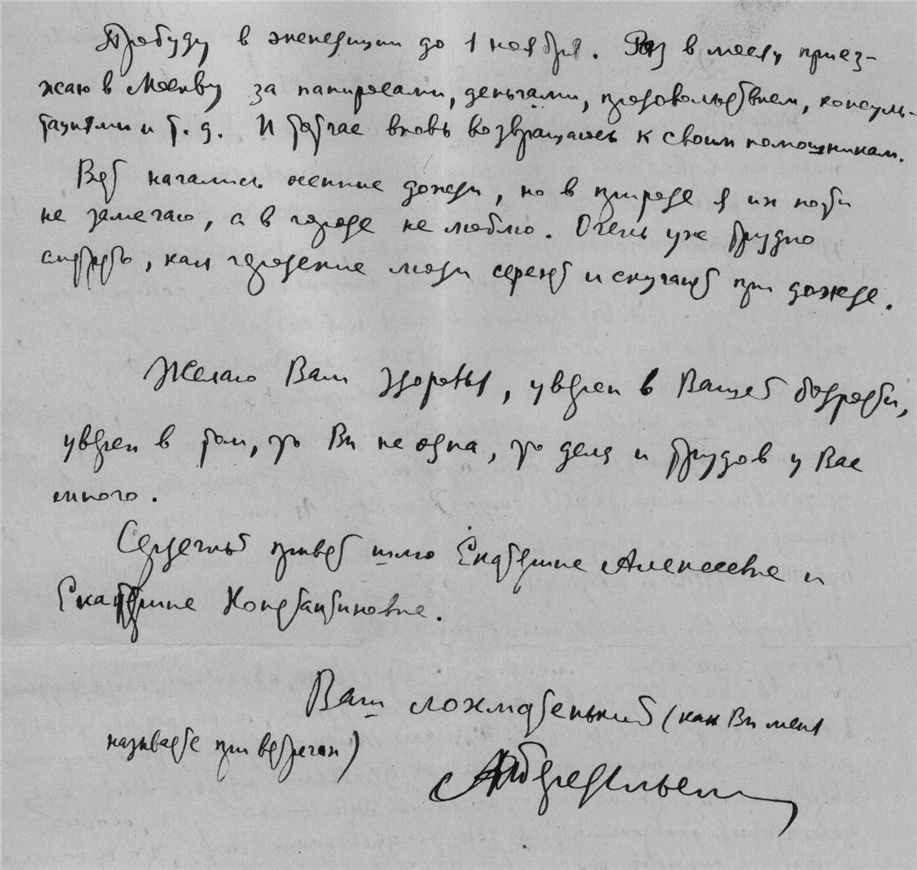 Пробуду в экспедиции до 1 ноября. Раз в месяц приез-
жаю в Москву за папиросами, деньгами, продовольствием, консуль-
тациями и т.д. И тотчас вновь возвращаюсь к своим помощникам.
Вот начались осенние дожди, но в природе я их почти
не замечаю, а в городе не люблю. Очень уже трудно
смотреть, как городские люди сереют и скучают при дожде.
Желаю Вам здоровья, уверен в Вашей бодрости,
уверен в том, что Вы не одна, что дела и трудов у Вас
много.
Сердечный привет шлю Екатерине Алексеевне и
Екатерине Константиновне.
Ваш лохматенький (как Вы меня
называете при встречах)